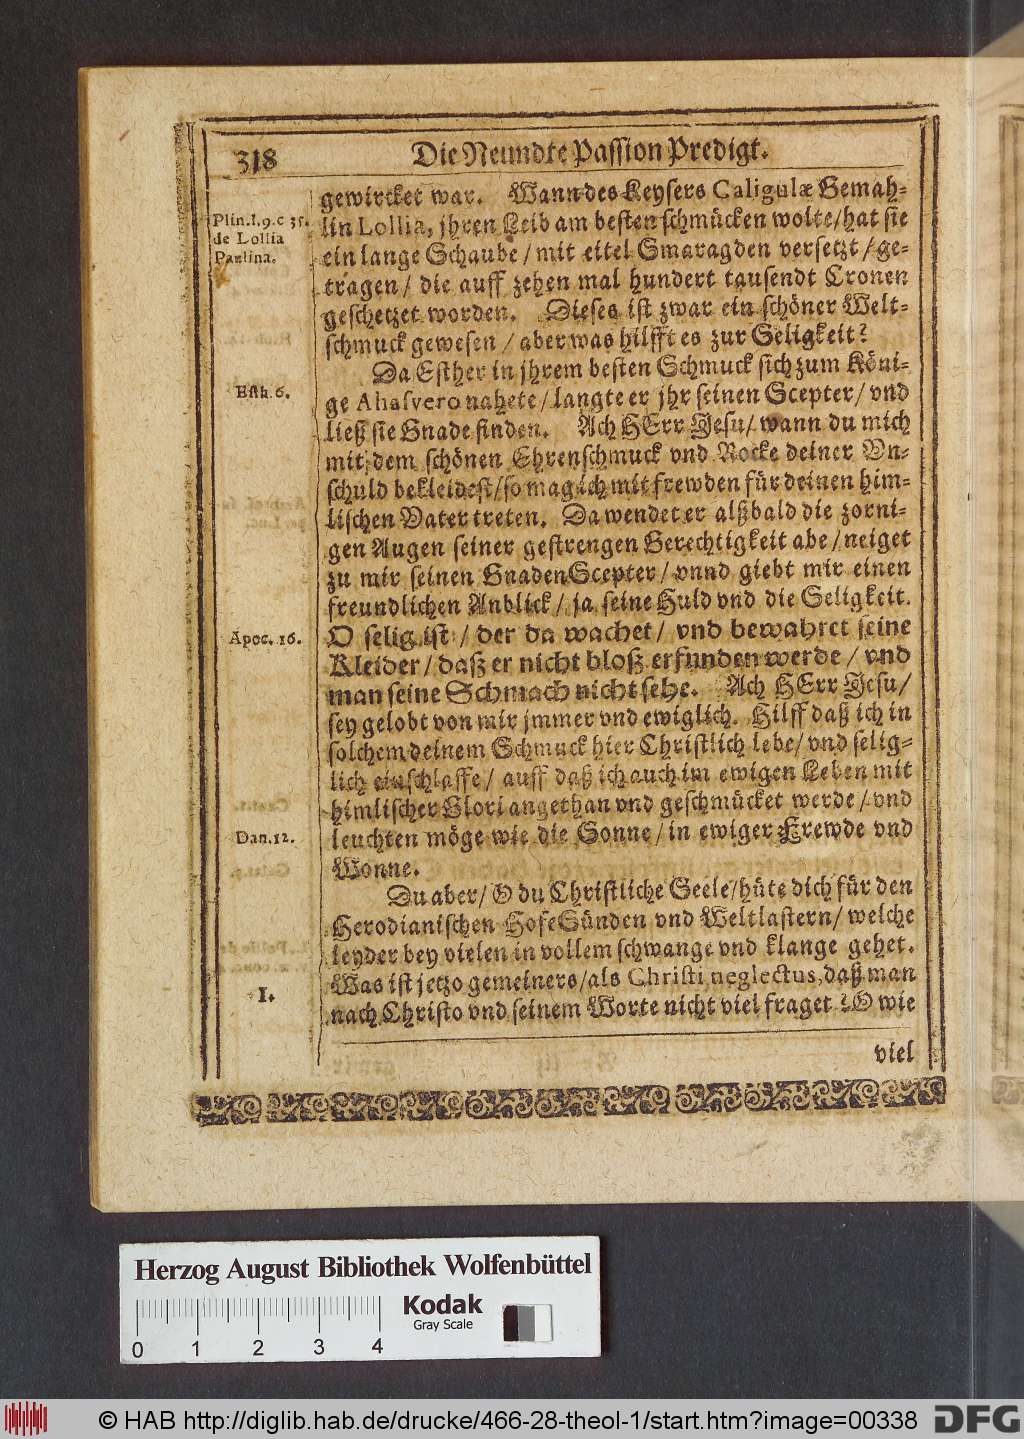 318
Die Neundte Passion Predigt.
gewircket war. Wann des Keysers Caligulæ Gemah-
Plin. l. 9. c 35.
de Lollia
Paulina.
lin Lollia, jhren Leib am besten schmücken wolte/ hat sie
ein lange Schaube/ mit eitel Smaragden versetzt/ ge-
tragen/ die auff zehen mal hundert tausendt Cronen
geschetzet worden. Dieses ist zwar ein schöner Welt-
schmuck gewesen/ aber was hilfft es zur Seligkeit?
Da Esther in jhrem besten Schmuck sich zum Köni-
Esth. 6.
ge Ahasvero nahete/ langte er jhr seinen Scepter/ vnd
ließ sie Gnade finden. Ach HErr Jesu/ wann du mich
mit dem schönen Ehrenschmuck vnd Rocke deiner Vn-
schuld bekleidest/ so mag ich mit frewden für deinen him-
lischen Vater treten. Da wendet er alßbald die zorni-
gen Augen seiner gestrengen Gerechtigkeit abe/ neiget
zu mir seinen GnadenScepter/ vnnd giebt mir einen
freundlichen Anblick/ ja seine Huld vnd die Seligkeit.
Apoc. 16.
O selig ist/ der da wachet/ vnd bewahret seine
Kleider/ daß er nicht bloß erfunden werde/ vnd
man seine Schmach nicht sehe. Ach HErr Jesu/
sey gelobt von mir jmmer vnd ewiglich. Hilff daß ich in
solchem deinem Schmuck hier Christlich lebe/ vnd selig-
lich einschlaffe/ auff daß ich auch im ewigen Leben mit
himlischer Glori angethan vnd geschmücket werde/ vnd
Dan. 12.
leuchten möge wie die Sonne/ in ewiger Frewde vnd
Wonne.
Du aber/ O du Christliche Seele/ hüte dich für den
Herodianischen HofeSünden vnd Weltlastern/ welche
leyder bey vielen in vollem schwange vnd klange gehet.
I.
Was ist jetzo gemeiners/ als Christi neglectus, daß man
nach Christo vnd seinem Worte nicht viel fraget? O wie
viel
Herzog August Bibliothek Wolfenbüttel
Kodak
Gray Scale
0 1 2 3 4
© HAB http://diglib.hab.de/drucke/466-28-theol-1/start.htm?image=00338
DFG